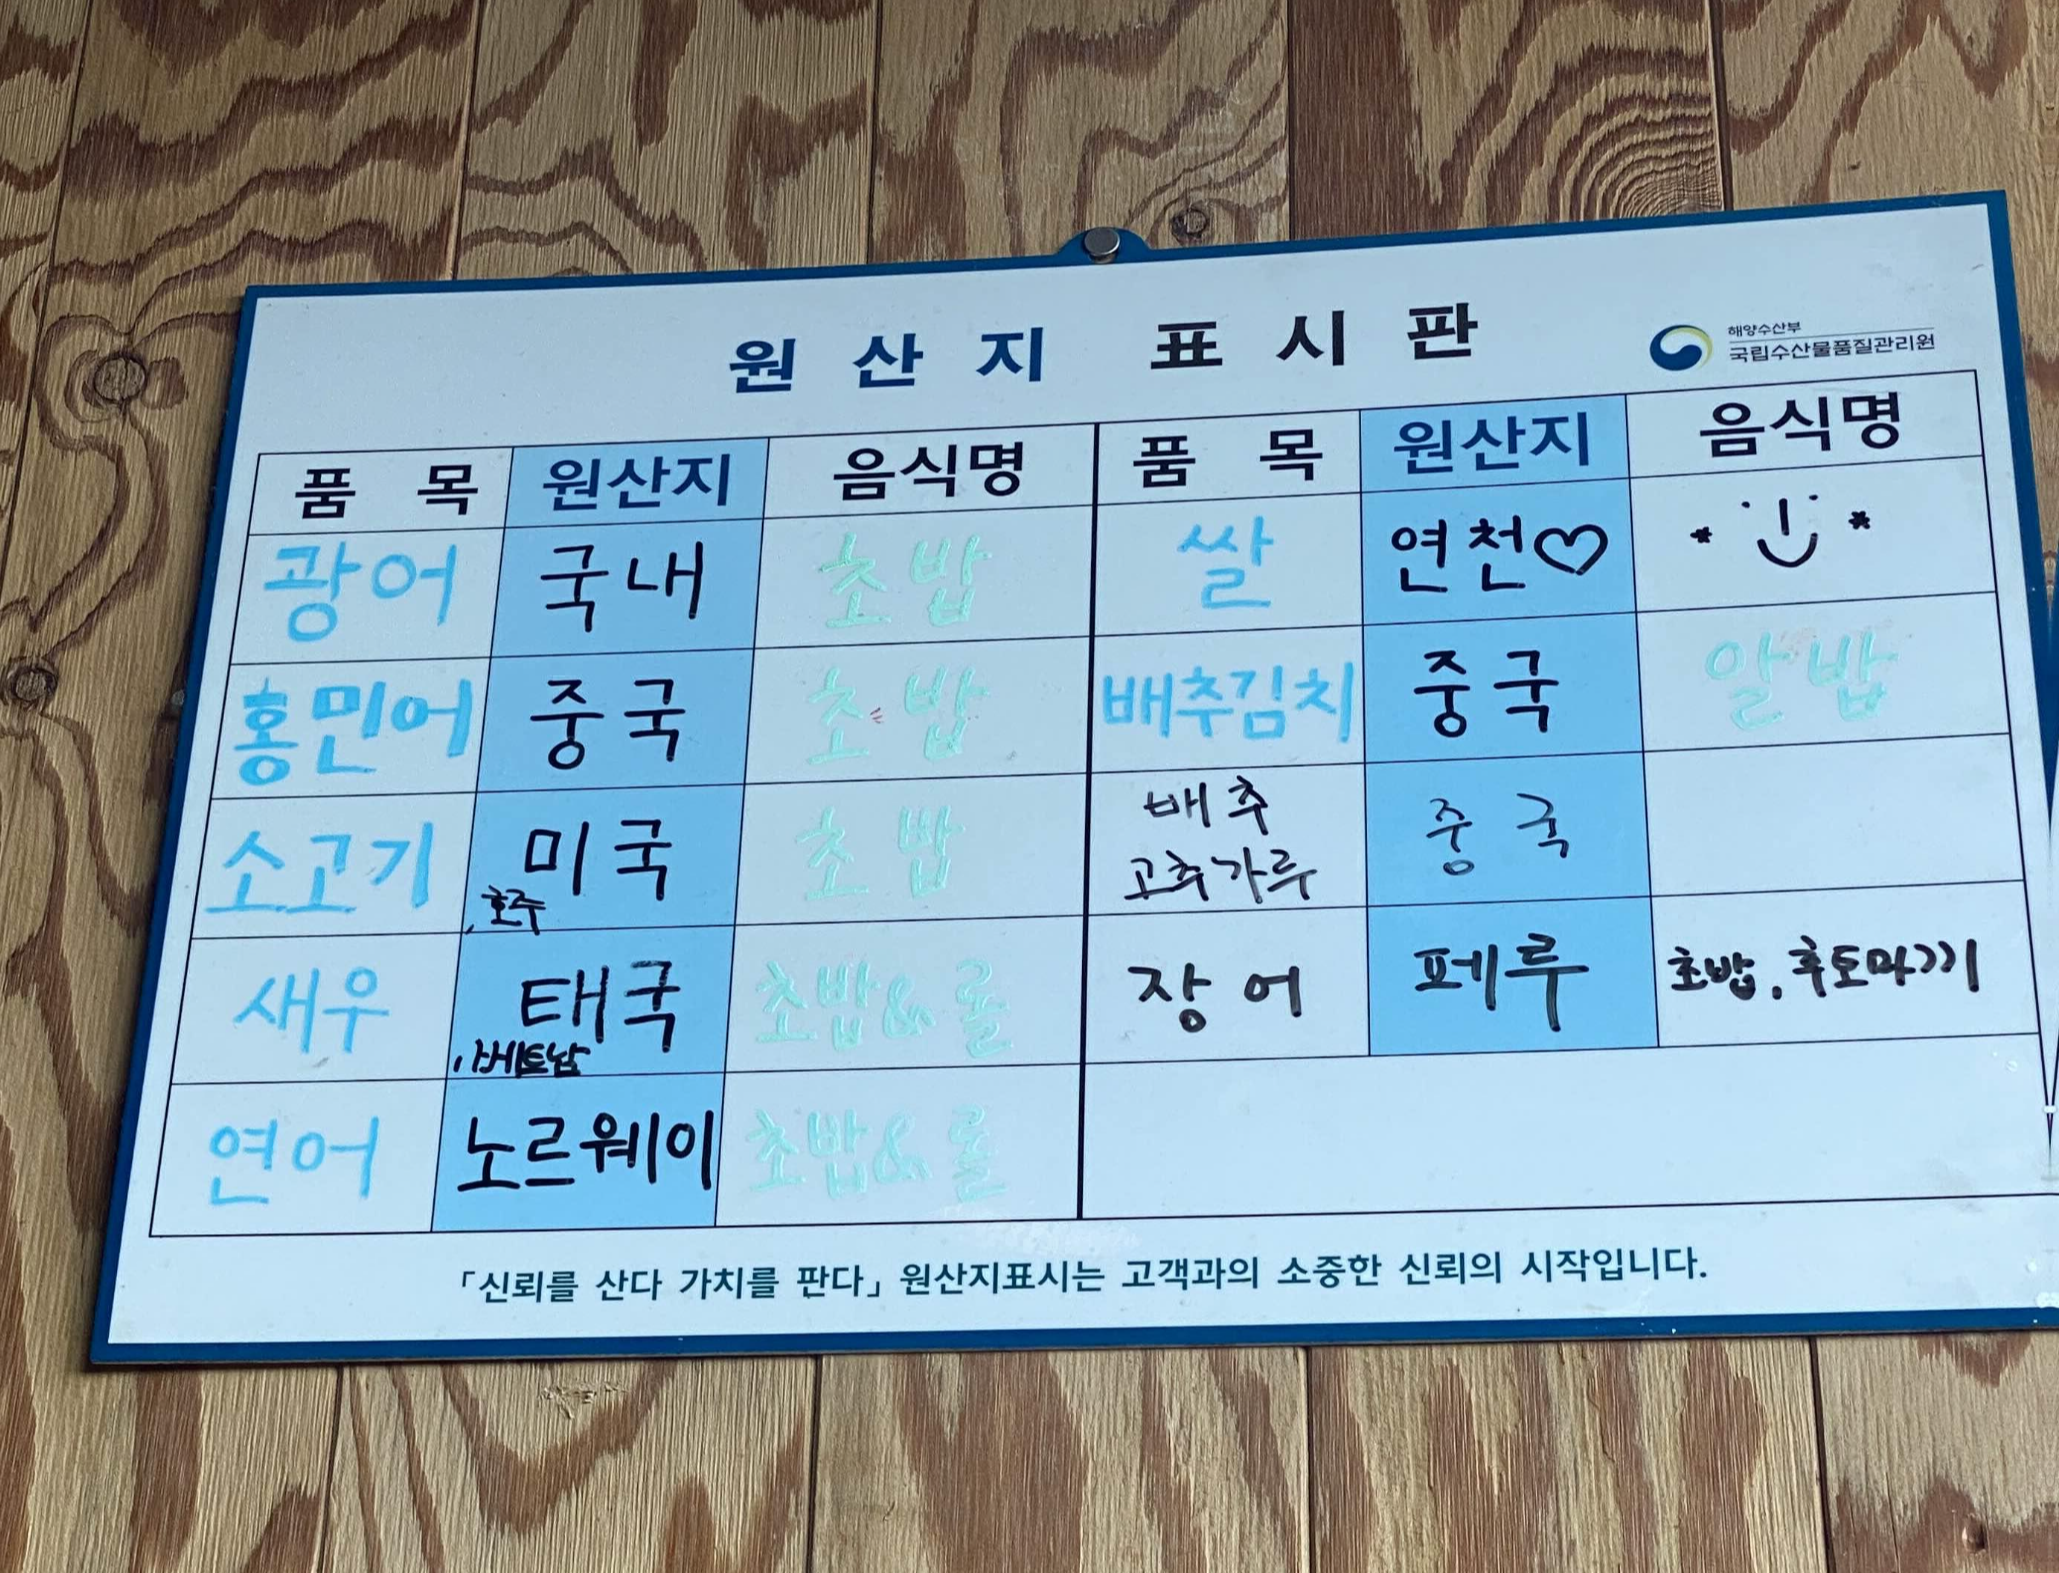 원산지 표시판
해양수산부
국립수산물품질관리원
품목 원산지 음식명 품목 원산지 음식명
광어 국내 초밥 쌀 연천♡
홍민어 중국 초밥 배추김치 중국 알밥
소고기 미국, 호주 초밥 배추 고추가루 중국
새우 태국, 베트남 초밥&롤 장어 페루 초밥, 후토마끼
연어 노르웨이 초밥&롤
「신뢰를 산다 가치를 판다」 원산지표시는 고객과의 소중한 신뢰의 시작입니다.